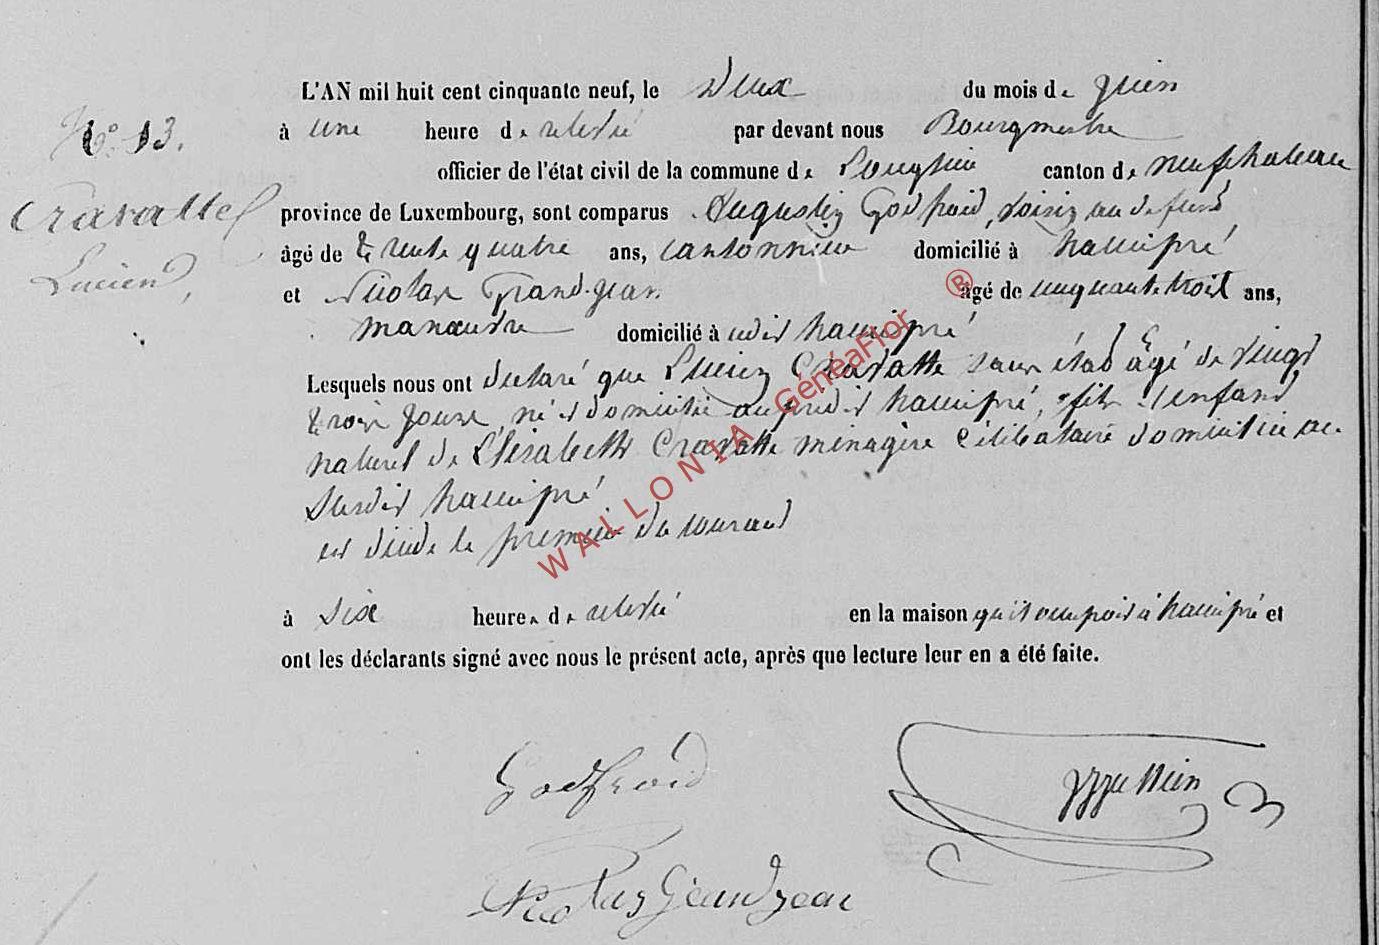 L'AN mil huit cent cinquante neuf, le deux du mois de juin
N° 13.
à une heure de relevée par devant nous Bourgmestre
officier de l'état civil de la commune de Longlier canton de neufchateau
Cravatte
province de Luxembourg, sont comparus Augustin Godfroid, voisin au defunt
âgé de trente quatre ans, cantonnier domicilié à hamipré
Lucien,
et Nicolas Grand-jean âgé de cinquante trois ans,
manoeuvre domicilié à udit hamipré
Lesquels nous ont declaré que Lucien Cravatte sans état âgé de vingt
trois jours, né et domicilié au predit hamipré, fils enfant
naturel de Elisabeth Cravatte menagère Célibataire domiciliée au
susdit hamipré
est décédé le premier du courant
à six heures de relevée en la maison qu'il occupoit à hamipré et
ont les déclarants signé avec nous le présent acte, après que lecture leur en a été faite.
Godfroid
Nicolas Grandjean
WALLONIA GénéaFlor ®